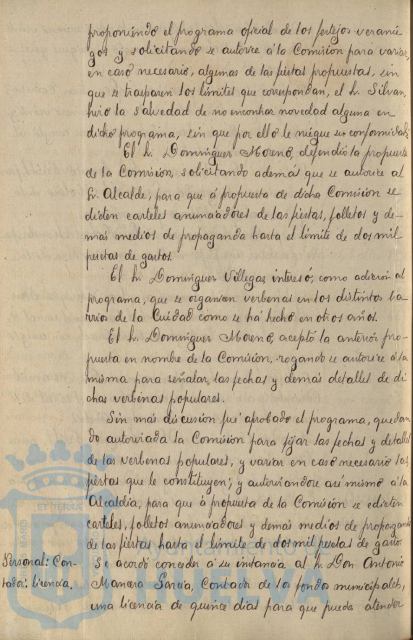 proponiendo el programa oficial de los festejos veranie
gos y solicitando se autorice á la Comision para variar,
en caso necesario, algunas de las fiestas propuestas, sin
que se traspasen los límites que correspondan, el Sr. Silvan,
hizo la salvedad de no encontrar novedad alguna en
dicho programa, sin que por ello le niegue su conformidad.
El Sr. Dominguez Moreno, defendió la propuesta
de la Comision, solicitando además que se autorice al
Sr. Alcalde, para que á propuesta de dicha Comision se
editen carteles anunciadores de las fiestas, folletos y de-
más medios de propaganda hasta el límite de dos mil
pesetas de gastos.
El Sr. Dominguez Villegas interesó, como adicion al
programa, que se organicen verbenas en los distintos ba
rrios de la Ciudad como se há hecho en otros años.
El Sr. Dominguez Moreno, aceptó la anterior pro-
puesta en nombre de la Comision, rogando se autorice á la
misma para señalar, las fechas y demás detalles de di
chas verbenas populares.
Sin más discusion fué aprobado el programa, quedan
do autorizada la Comision para fijar las fechas y detalles
de las verbenas populares, y variar en caso necesario las
fiestas que le constituyen; y autorizandose asi mismo á la
Alcaldia, para que á propuesta de la Comision se editen
carteles, folletos anunciadores y demás medios de propaganda
de las fiestas hasta el límite de dos mil pesetas de gastos.
Personal: Con-
tador: licencia.
Se acordó conceder á su instancia al Sr. Don Antonio
Mancera Garcia, Contador de los fondos municipales,
una licencia de quince dias para que pueda atender